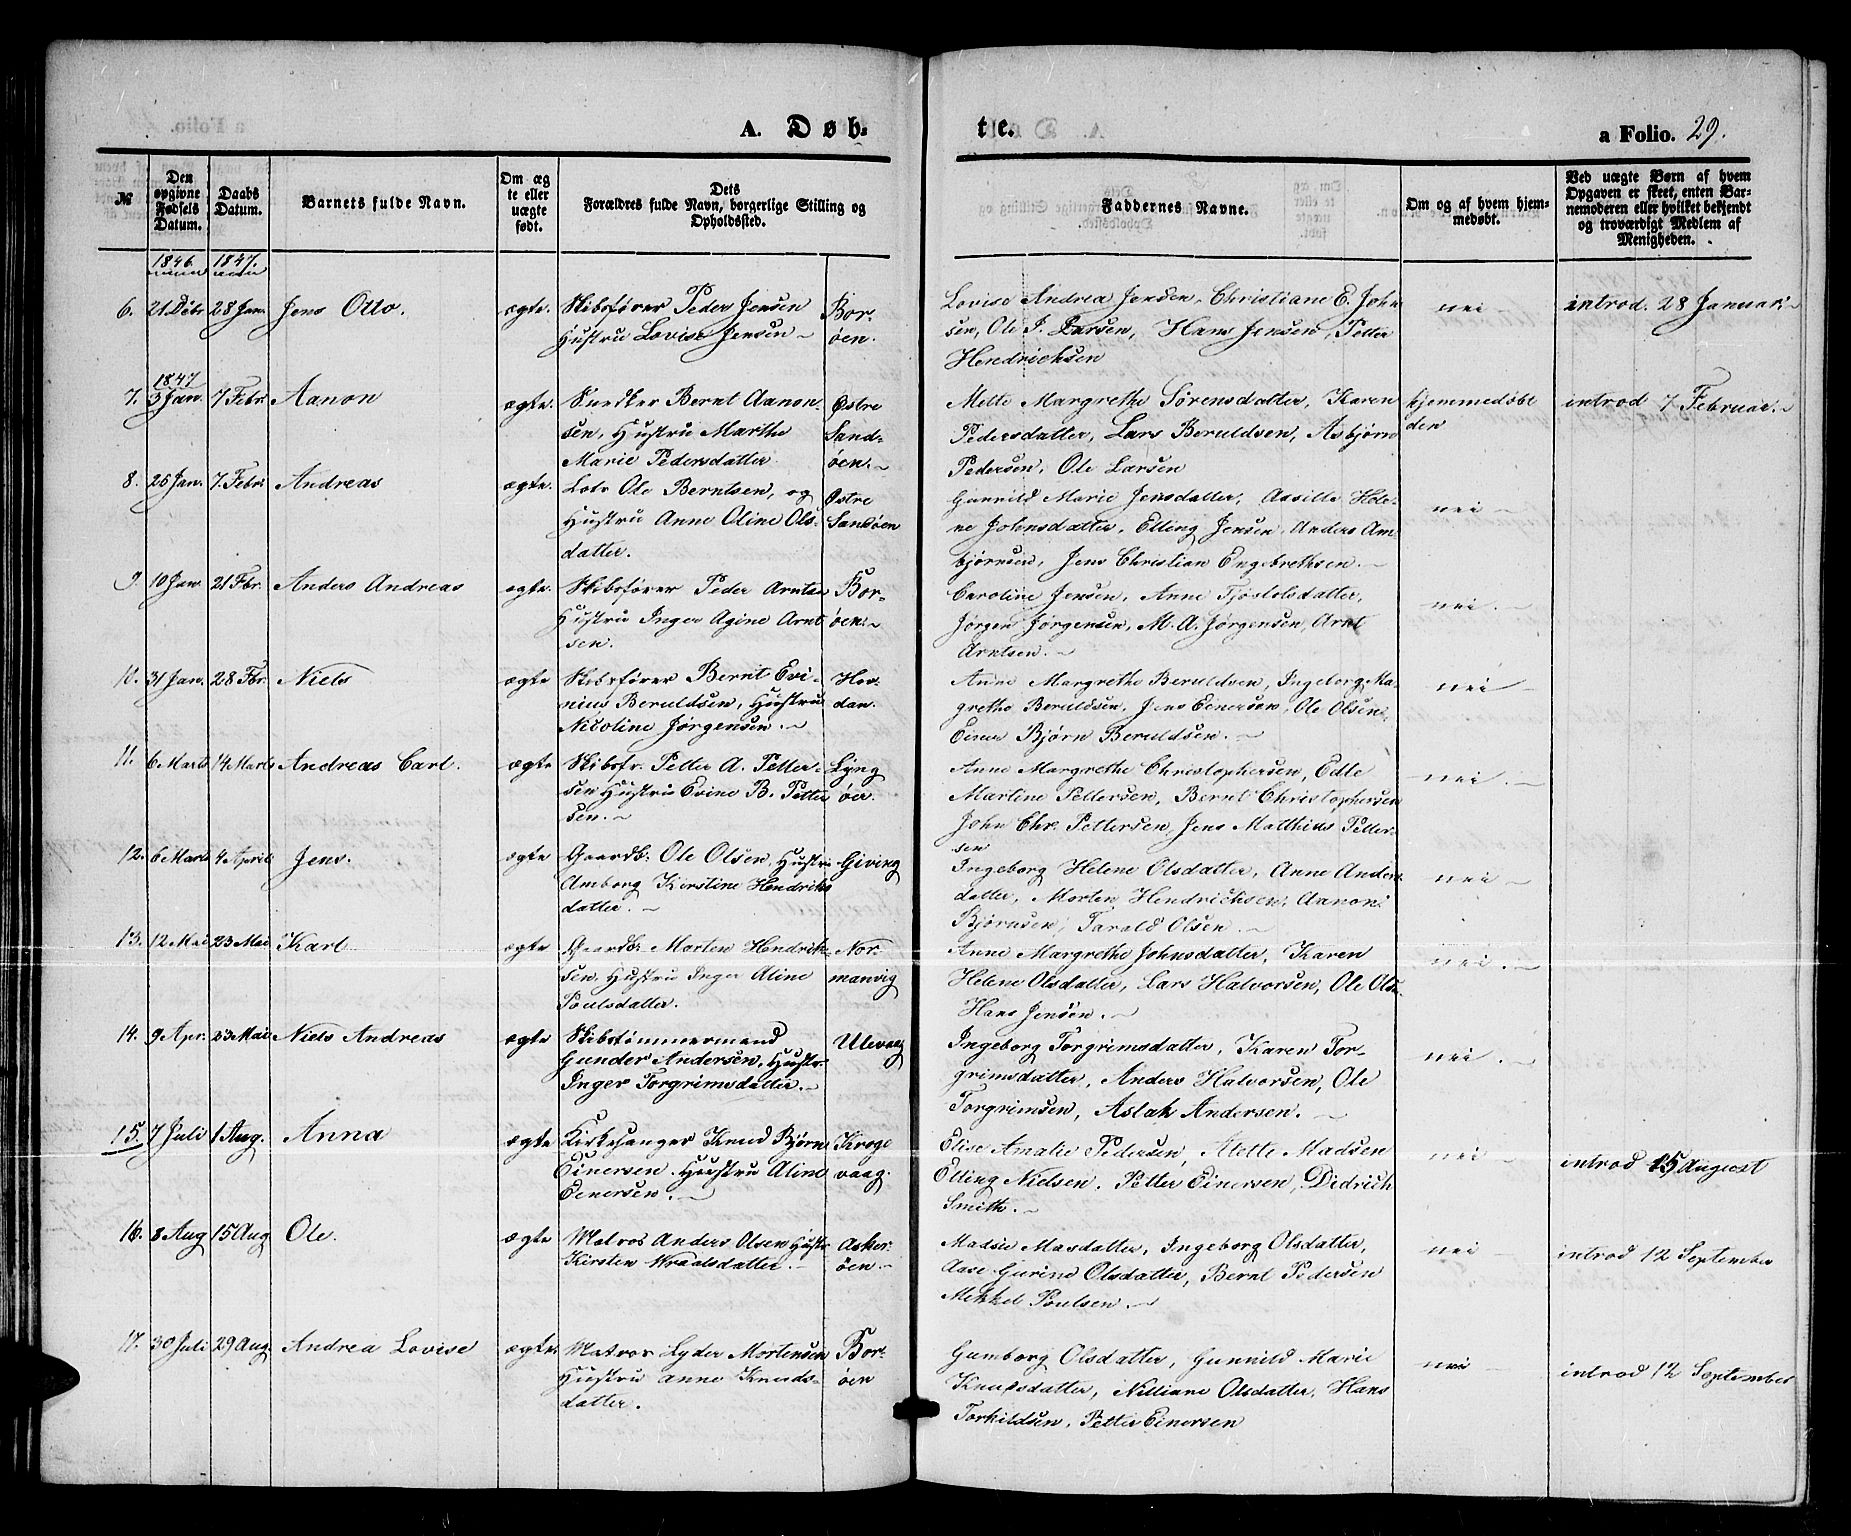 A. Døb-
te.
a Folio. 29.
№
Den opgivne Fødsels Datum.
Daabs Datum.
Barnets fulde Navn.
Om ægte eller uægte født.
Dets Forældres fulde Navn, borgerlige Stilling og Opholdssted.
Faddernes Navne.
Om og af hvem hjemmedøbt.
Ved uægte Børn af hvem Opgaven er skeet, enten Barnemoderen eller hvilket bekjendt og troværdigt Medlem af Menigheden.
1846 1847.
6. 21 Debr 28 Jan. Jens Otto. ægte. Skibsfører Peder Jensen Bor-
Hustru Lovise Jensen øen.
Lovise Andrea Jensen, Christiane E. John
sen, Ole J. Larsen, Hans Jensen, Petter
Hendrichsen
nei
introd. 28 Januar
1847
7. 3 Jan. 7 Febr. Aanon ægte. Snedker Bernt Aanon- Østre
sen, Hustru Marthe Sand-
Marie Pedersdatter øen.
Mette Margrethe Sørensdatter, Karen
Pedersdatter, Lars Beruldsen, Asbjørn
Pedersen, Ole Larsen
hjemmedøbt
den
introd 7 Februar.
8. 25 Jan. 7. Febr Andreas ægte. Lods Ole Berntsen, og Østre
Hustru Anne Oline Ols- Sandøen
datter.
Gunnild Marie Jensdatter, Aasille Hele-
ne Johnsdatter, Elling Jensen, Anders Am
bjørnsen, Jens Christian Engebrethsen.
nei
9. 10 Jan 21 Fbr. Anders Andreas ægte. Skibsfører Peder Arntsen Bor-
Hustru Inger Agine Arnt øen.
sen.
Caroline Jensen, Anne Tjøstelsdatter,
Jørgen Jørgensen, M. A. Jørgensen, Arnt
Arntsen.
nei.
10. 31 Jan. 28 Fbr. Niels ægte Skibsfører Bernt Evi- Hov-
nius Beruldsen, Hustru dan.
Nicoline Jørgensen.
Anne Margrethe Beruldsen, Ingeborg Ma-
grethe Beruldsen, Jens Eenersen, Ole Olsen,
Einer Bjørn Beruldsen.
nei
11. 6 Marts 14 Marts Andreas Carl. ægte Skibsfr. Petter A. Petter- Lyng
sen Hustru Evine B. Petter øer.
sen.
Anne Margrethe Christophersen, Edle
Martine Pettersen, Bernt Christophersen
John Chr. Pettersen, Jens Matthias Petter-
sen
nei.
12. 6 Marts 4 April Jens. ægte Gaardb. Ole Olsen, Hustru Giving
Amborg Kirstine Hendriks
datter.
Ingeborg Helene Olsdatter, Anne Anders
datter, Morten Hendrichsen, Aanon
Bjørnsen, Tarald Olsen.
nei
13. 12 Mai 23 Mai Karl ægte Gaardbr Morten Hendrik- Nor-
sen, Hustru Inger Aline manvig
Poulsdatter.
Anne Margrethe Johnsdatter, Karen
Helene Olsdatter, Lars Halvorsen, Ole Ols
Hans Jensen.
nei.
14. 9 Apr. 23 Mai Niels Andreas ægte Skibstømmermand Ulevaag
Gunder Andersen, Hustr.
Inger Torgrimsdatter.
Ingeborg Torgrimsdatter, Karen Tor-
grimsdatter, Anders Halvorsen, Ole
Torgrimsen, Aslak Andersen.
nei.
15. 7 Juli 1 Aug. Anna ægte Kirkesanger Knud Bjørn Kroge
Einersen, Hustru Aline vaag.
Eenersen.
Elise Amalie Pedersen, Mette Madsen
Elling Nielsen, Petter Einersen, Didrich
Smith.
nei
introd 15 August
16. 8 Aug 15 Aug Ole. ægte Matros Anders Olsen Hustr Asker-
Kirsten Wraalsdatter. øen.
Madsie Masdatter, Ingeborg Olsdatter,
Aase Gurine Olsdatter, Bernt Pedersen
Mekkel Poulsen.
nei
introd 12 September
17. 30 Juli 29 Aug. Andrea Lovise ægte. Matros Lyder Mortensen Bor-
Hustru Anne Knuds- øen
datter.
Gumborg Olsdatter, Gunnild Marie
Knudsdatter, Nilliane Olsdatter, Hans
Torkildsen, Petter Einersen
nei
introd 12 September